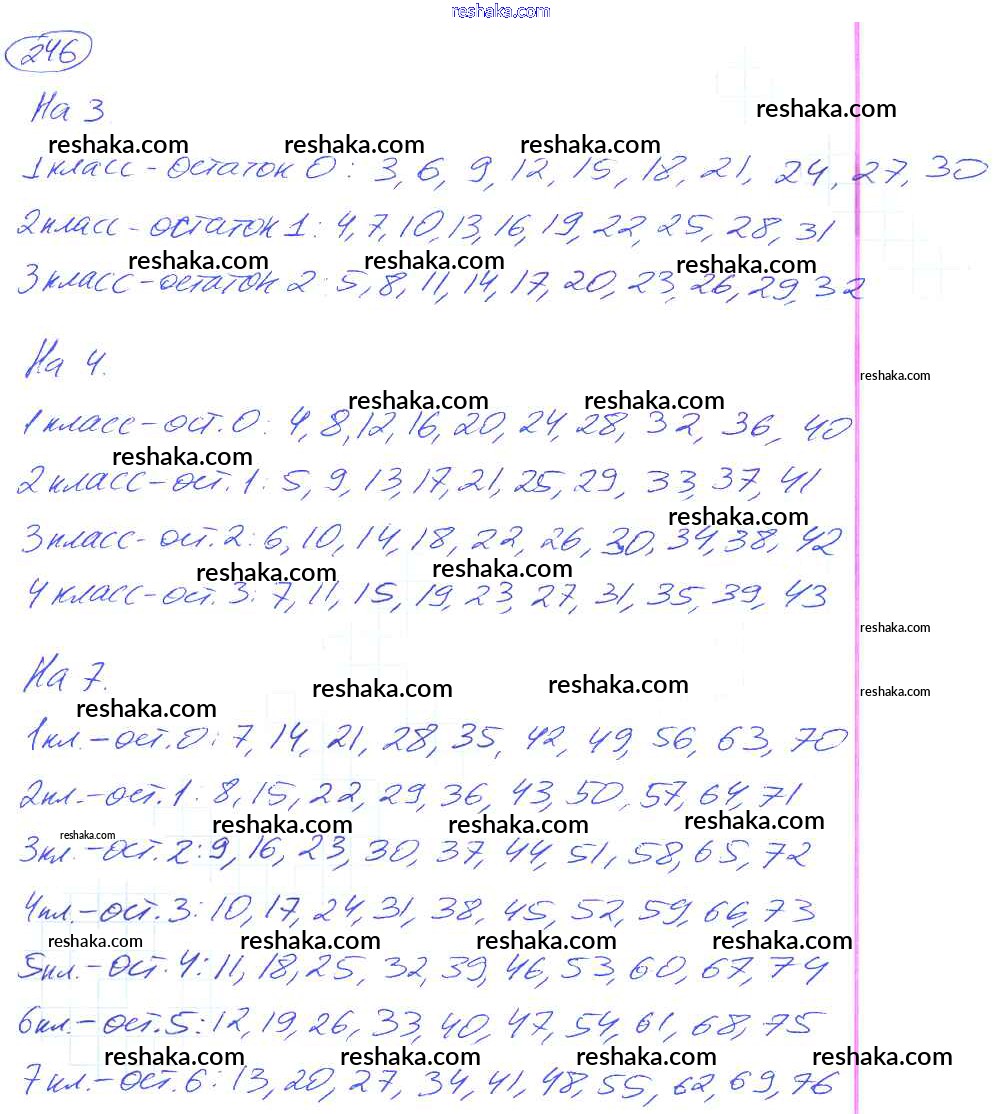 reshaka.com
246
На 3
reshaka.com
reshaka.com reshaka.com reshaka.com
1 класс - остаток 0: 3, 6, 9, 12, 15, 18, 21, 24, 27, 30
2 класс - остаток 1: 4, 7, 10, 13, 16, 19, 22, 25, 28, 31
reshaka.com reshaka.com reshaka.com
3 класс - остаток 2: 5, 8, 11, 14, 17, 20, 23, 26, 29, 32
На 4.
reshaka.com
reshaka.com reshaka.com
1 класс - ост. 0: 4, 8, 12, 16, 20, 24, 28, 32, 36, 40
reshaka.com
2 класс - ост. 1: 5, 9, 13, 17, 21, 25, 29, 33, 37, 41
reshaka.com
3 класс - ост. 2: 6, 10, 14, 18, 22, 26, 30, 34, 38, 42
reshaka.com reshaka.com
4 класс - ост. 3: 7, 11, 15, 19, 23, 27, 31, 35, 39, 43
reshaka.com
На 7.
reshaka.com reshaka.com reshaka.com
reshaka.com
1 кл. - ост. 0: 7, 14, 21, 28, 35, 42, 49, 56, 63, 70
2 кл. - ост. 1: 8, 15, 22, 29, 36, 43, 50, 57, 64, 71
reshaka.com reshaka.com reshaka.com reshaka.com
3 кл. - ост. 2: 9, 16, 23, 30, 37, 44, 51, 58, 65, 72
4 кл. - ост. 3: 10, 17, 24, 31, 38, 45, 52, 59, 66, 73
reshaka.com reshaka.com reshaka.com reshaka.com
5 кл. - ост. 4: 11, 18, 25, 32, 39, 46, 53, 60, 67, 74
6 кл. - ост. 5: 12, 19, 26, 33, 40, 47, 54, 61, 68, 75
reshaka.com reshaka.com reshaka.com reshaka.com
7 кл. - ост. 6: 13, 20, 27, 34, 41, 48, 55, 62, 69, 76